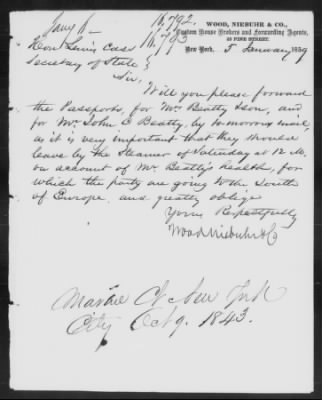 16,792.
Jany 8
16,793
WOOD, NIEBUHR & CO.,
Custom House Brokers and Forwarding Agents,
New York. 5 January 1859
Hon Lewis Cass
Secretary of State
Sir,
Will you please forward
the Passports, for Mr. Beatty & son, and
for Mr. John C Beatty, by to-morrows mail,
as it is very important that they should
leave by the Steamer of Saturday at 12 M.
on account of Mr Beatty's health, for
which the party are going to the South
of Europe, and greatly oblige
Yours Respectfully
Wood Niebuhr & Co
Marine Ct New York
City Oct 9. 1843.